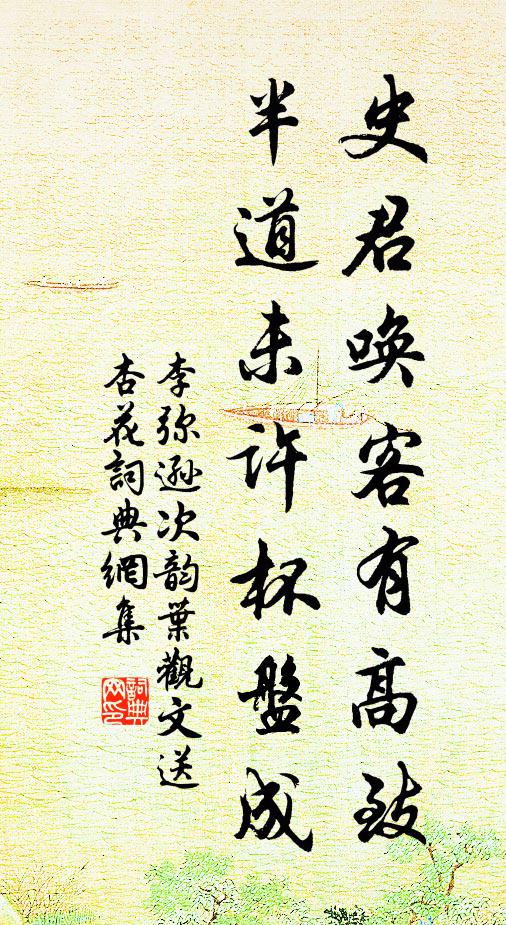 史君唤客有高致
半道未许杯盤成
李弥逊次韵葉觀文送
杏花詞典網集
詞典網印